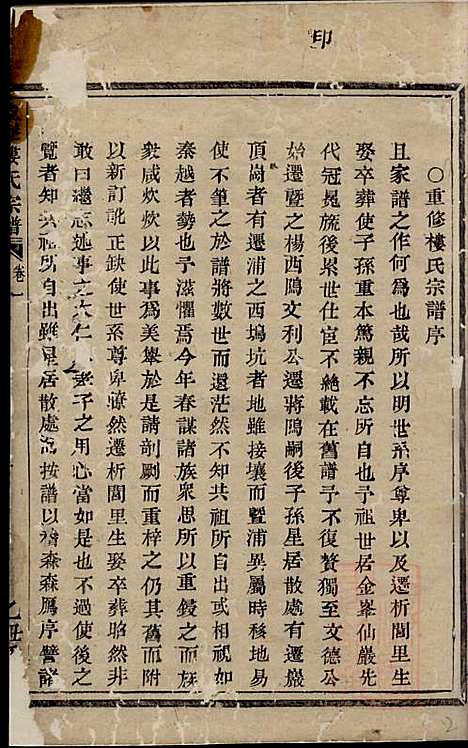 印
○重修樓氏宗譜序
且家譜之作何為也哉所以明世系序尊卑以及遷析閭里生
娶卒葬使子孫重本篤親不忘所自也予祖世居金峯仙巖先
代冠冕旒後累世仕宦不絶載在舊譜予不復贅獨至文德公
始遷暨之楊西鴎文利公遷蔣鴎嗣後子孫星居散處有遷巖
頂崗者有遷浦之西塢坑者地雖接壤而暨浦異屬時移地易
使不筆之於譜將數世而還茫然不知共祖所自出或相視如
秦越者勢也予滋懼焉今年春謀諸族衆思所以重鋟之而族
衆咸欣欣以此事為美舉於是請剞劂而重梓之仍其舊而附
以新訂訛正缺使世系尊卑瞭然遷析閭里生娶卒葬昭然非
敢曰繼志述事之仁人孝子之用心當如是也不過使後之
覽者知共祖所自出雖星居散處按譜以稽森森鴈序譬諸
婁氏宗譜 卷一